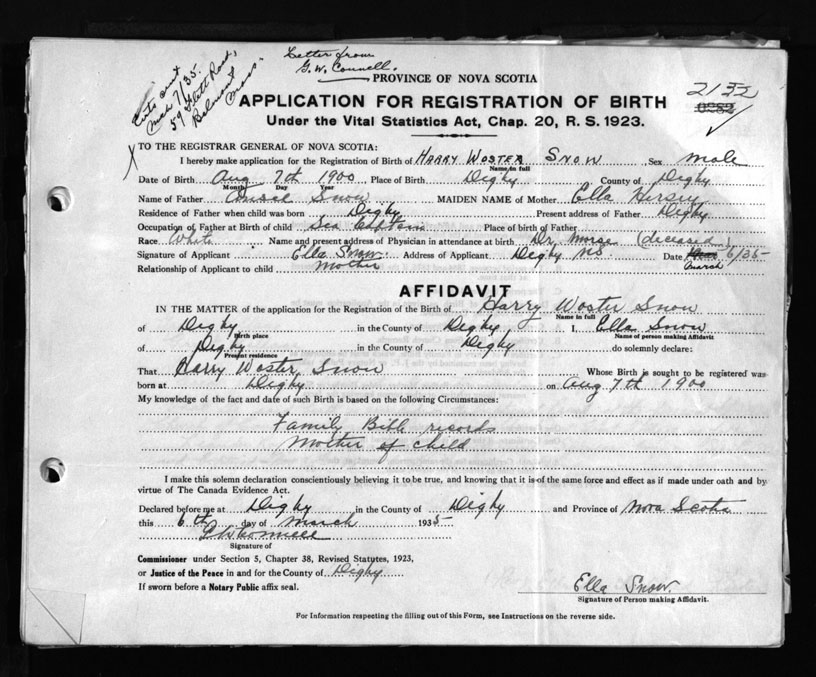 Letter from
G. W. Connell.
Mch 7/35.
59 Flett Road,
Belmont
Mass.
PROVINCE OF NOVA SCOTIA
2132
APPLICATION FOR REGISTRATION OF BIRTH
Under the Vital Statistics Act, Chap. 20, R. S. 1923.
TO THE REGISTRAR GENERAL OF NOVA SCOTIA:
I hereby make application for the Registration of Birth of HARRY WOSTER SNOW Sex male
Name in full
Date of Birth Aug 7th 1900 Place of Birth Digby County of Digby
Month Day Year
Name of Father Snow MAIDEN NAME of Mother Ella Hersey
Residence of Father when child was born Digby Present address of Father Digby
Occupation of Father at Birth of child Sea Captain Place of birth of Father
Race White Name and present address of Physician in attendance at birth Dr. Morse (deceased)
Signature of Applicant Ella Snow. Address of Applicant Digby NS Date 6/35
March
Relationship of Applicant to child Mother
AFFIDAVIT
IN THE MATTER of the application for the Registration of the Birth of Harry Woster Snow
Name in full
of Digby in the County of Digby I. Ella Snow
Birth place Name of person making Affidavit
of Digby in the County of Digby do solemnly declare:
Present residence
That Harry Woster Snow Whose Birth is sought to be registered was
born at Digby on Aug 7th 1900
My knowledge of the fact and date of such Birth is based on the following Circumstances:
Family Bible records
Mother of child
I make this solemn declaration conscientiously believing it to be true, and knowing that it is of the same force and effect as if made under oath and by
virtue of The Canada Evidence Act.
Declared before me at Digby in the County of Digby and Province of Nova Scotia
this 6th day of March 1935
G W Connell
Signature of
Commissioner under Section 5, Chapter 38, Revised Statutes, 1923,
or Justice of the Peace in and for the County of Digby
If sworn before a Notary Public affix seal.
Ella Snow.
Signature of Person making Affidavit.
For Information respecting the filling out of this Form, see Instructions on the reverse side.